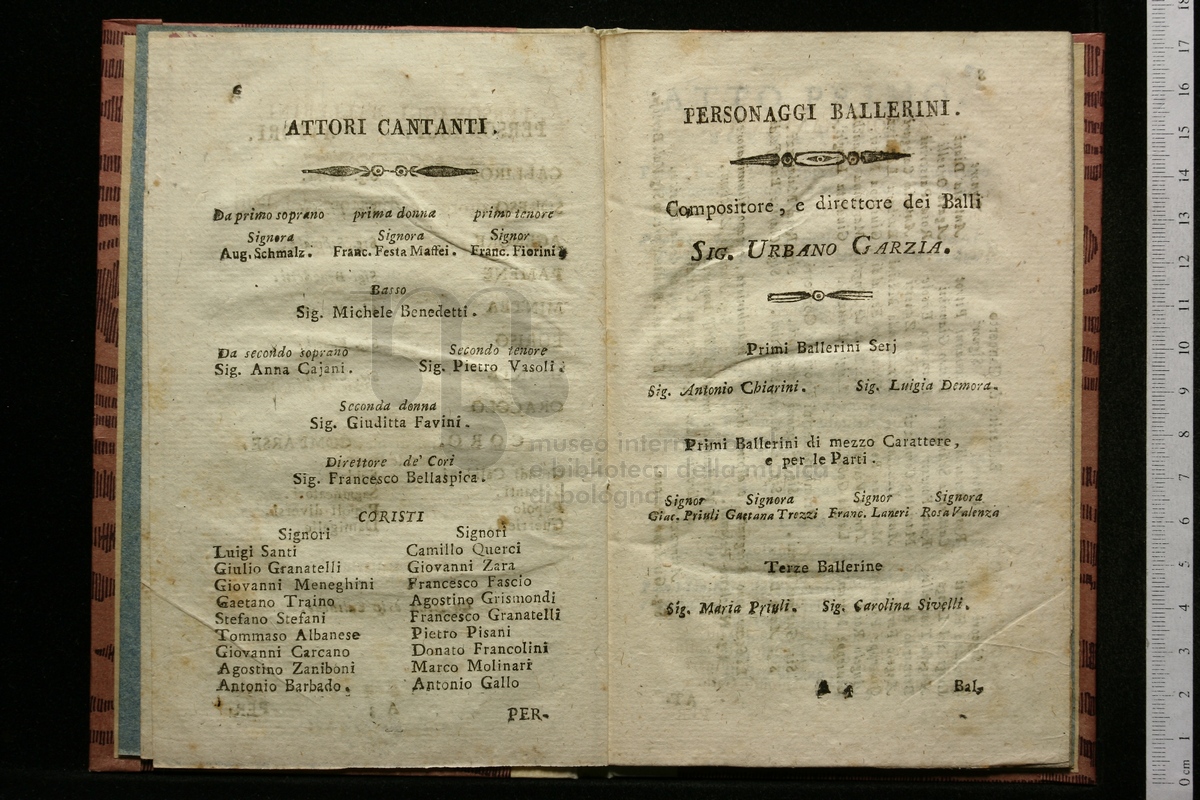 6
ATTORI CANTANTI.
Da primo soprano prima donna primo tenore
Signora Signora Signor
Aug. Schmalz. Franc. Festa Maffei. Franc. Fiorini
Basso
Sig. Michele Benedetti.
Da secondo soprano Secondo tenore
Sig. Anna Cajani. Sig. Pietro Vasoli
Seconda donna
Sig. Giuditta Favini.
Direttore de' Cori
Sig. Francesco Bellaspica.
CORISTI
Signori Signori
Luigi Santi Camillo Querci
Giulio Granatelli Giovanni Zara
Giovanni Meneghini Francesco Fascio
Gaetano Traino Agostino Grismondi
Stefano Stefani Francesco Granatelli
Tommaso Albanese Pietro Pisani
Giovanni Carcano Donato Francolini
Agostino Zaniboni Marco Molinari
Antonio Barbado. Antonio Gallo
PER-
PERSONAGGI BALLERINI.
Compositore, e direttore dei Balli
SIG. URBANO GARZIA.
Primi Ballerini Serj
Sig. Antonio Chiarini. Sig. Luigia Demora.
Primi Ballerini di mezzo Carattere,
e per le Parti.
Signor Signora Signor Signora
Giac. Priuli Gaetana Trezzi Franc. Laneri Rosa Valenza
Terze Ballerine
Sig. Maria Priuli. Sig. Carolina Sivelli.
Bal-
museo internazionale
e biblioteca della musica
di bologna
0 cm 1 2 3 4 5 6 7 8 9 10 11 12 13 14 15 16 17 18